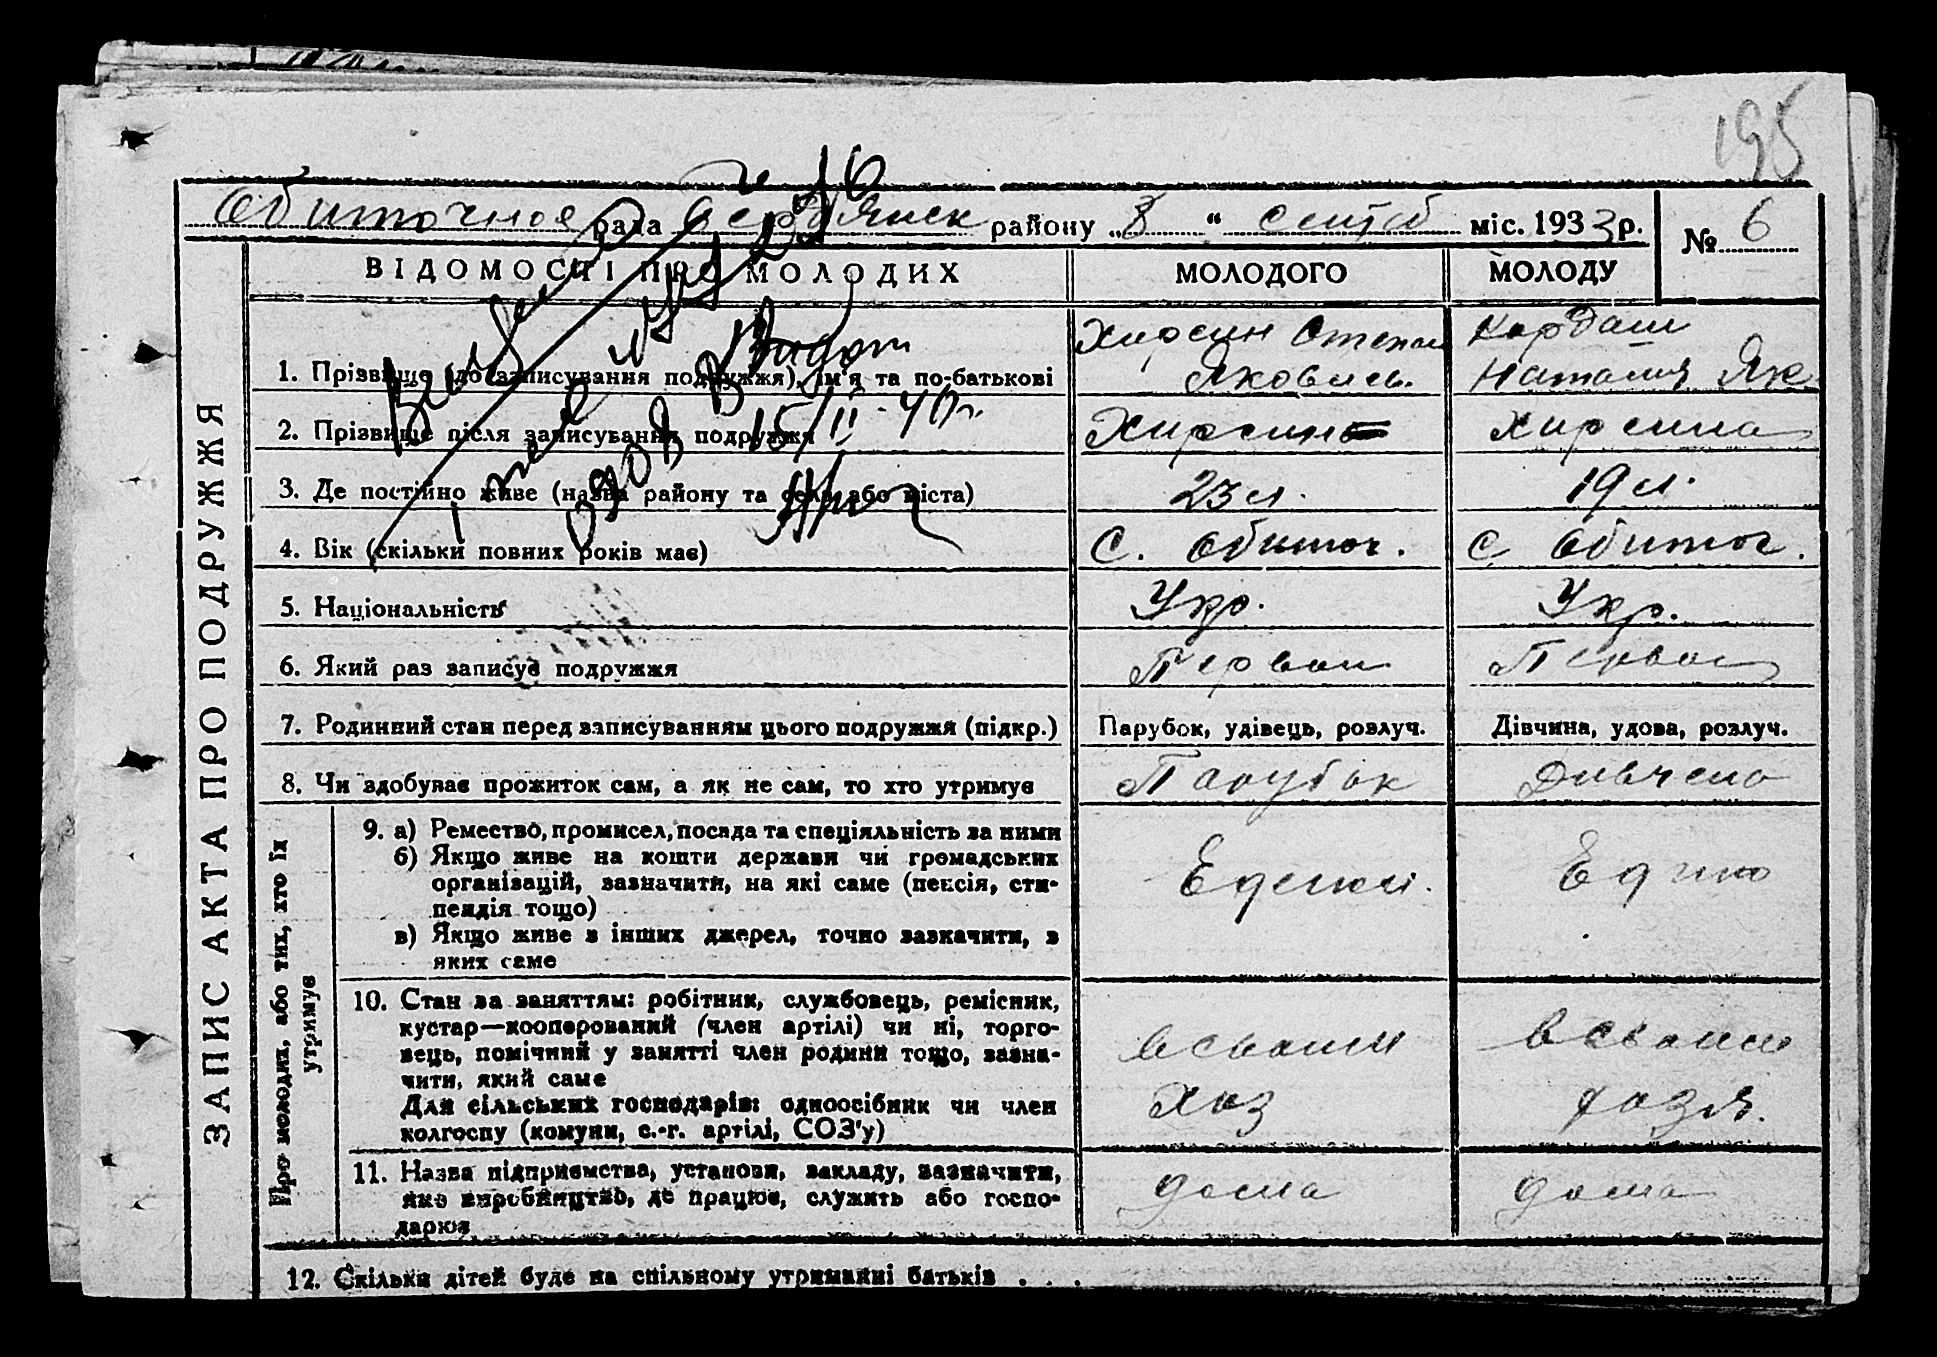 195
Обиточное рада Бердянск району „8“ сентяб міс. 1933 р. № 6
ВІДОМОСТІ ПРО МОЛОДИХ МОЛОДОГО МОЛОДУ
ЗАПИС АКТА ПРО ПОДРУЖЖЯ
1. Прізвище (до записування подружжя), ім'я та по-батькові Хирсин Степан Яковись. Кардаш Наталия Як
2. Прізвище після записування подружжя Хирсин Хирсина
3. Де постійно живе (назва району та села або міста) 23 л. 19 л.
4. Вік (скільки повних років має) С. Обиточ. С Обиточ.
5. Національність Укр. Укр.
6. Який раз записує подружжя Первый Первый
7. Родинний стан перед записуванням цього подружжя (підкр.) Парубок, удівець, розлуч. Дівчина, удова, розлуч.
8. Чи здобуває прожиток сам, а як не сам, то хто утримує Парубок Дивчено
Про молодих, або тих, хто їх утримує
9. а) Ремество, промисел, посада та спеціяльність за ними
б) Якщо живе на кошти держави чи громадських
організацій, зазначити, на які саме (пенсія, сти-
пендія тощо)
в) Якщо живе з інших джерел, точно зазначити, з
яких саме
10. Стан за заняттям: робітник, службовець, ремісник,
кустар—кооперований (член артілі) чи ні, торго-
вець, помічний у занятті член родини тощо, зазна-
чити, який саме
Для сільських господарів: одноосібник чи член
колгоспу (комуни, с.-г. артілі, СОЗ'у)
Хоз
11. Назва підприємства, установи, закладу, зазначити,
яке виробництво, де працює, служить або госпо-
дарює
дома дома
12. Скільки дітей буде на спільному утриманні батьків . . .
15/II-40г.